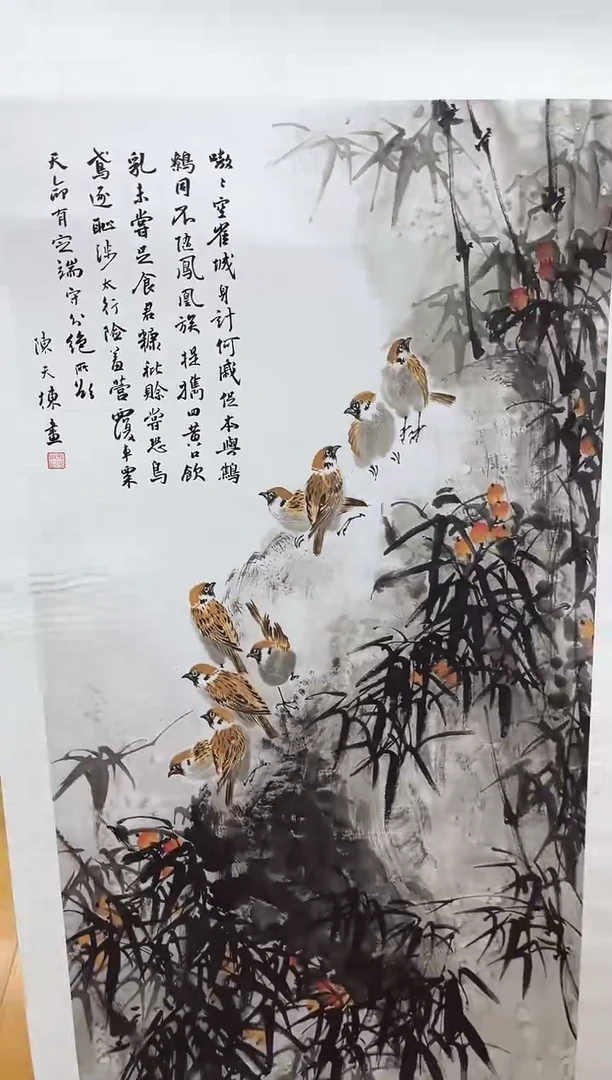 嗷〻空雀城身計何戚促本與鷦
鷯同不随鳳凰族提攜四黄口飲
乳未嘗足食君糠秕賒嘗恐烏
鳶逐恥涉太行險羞營覆車粟
天命有定端守分絶所欲
陳天棟畫